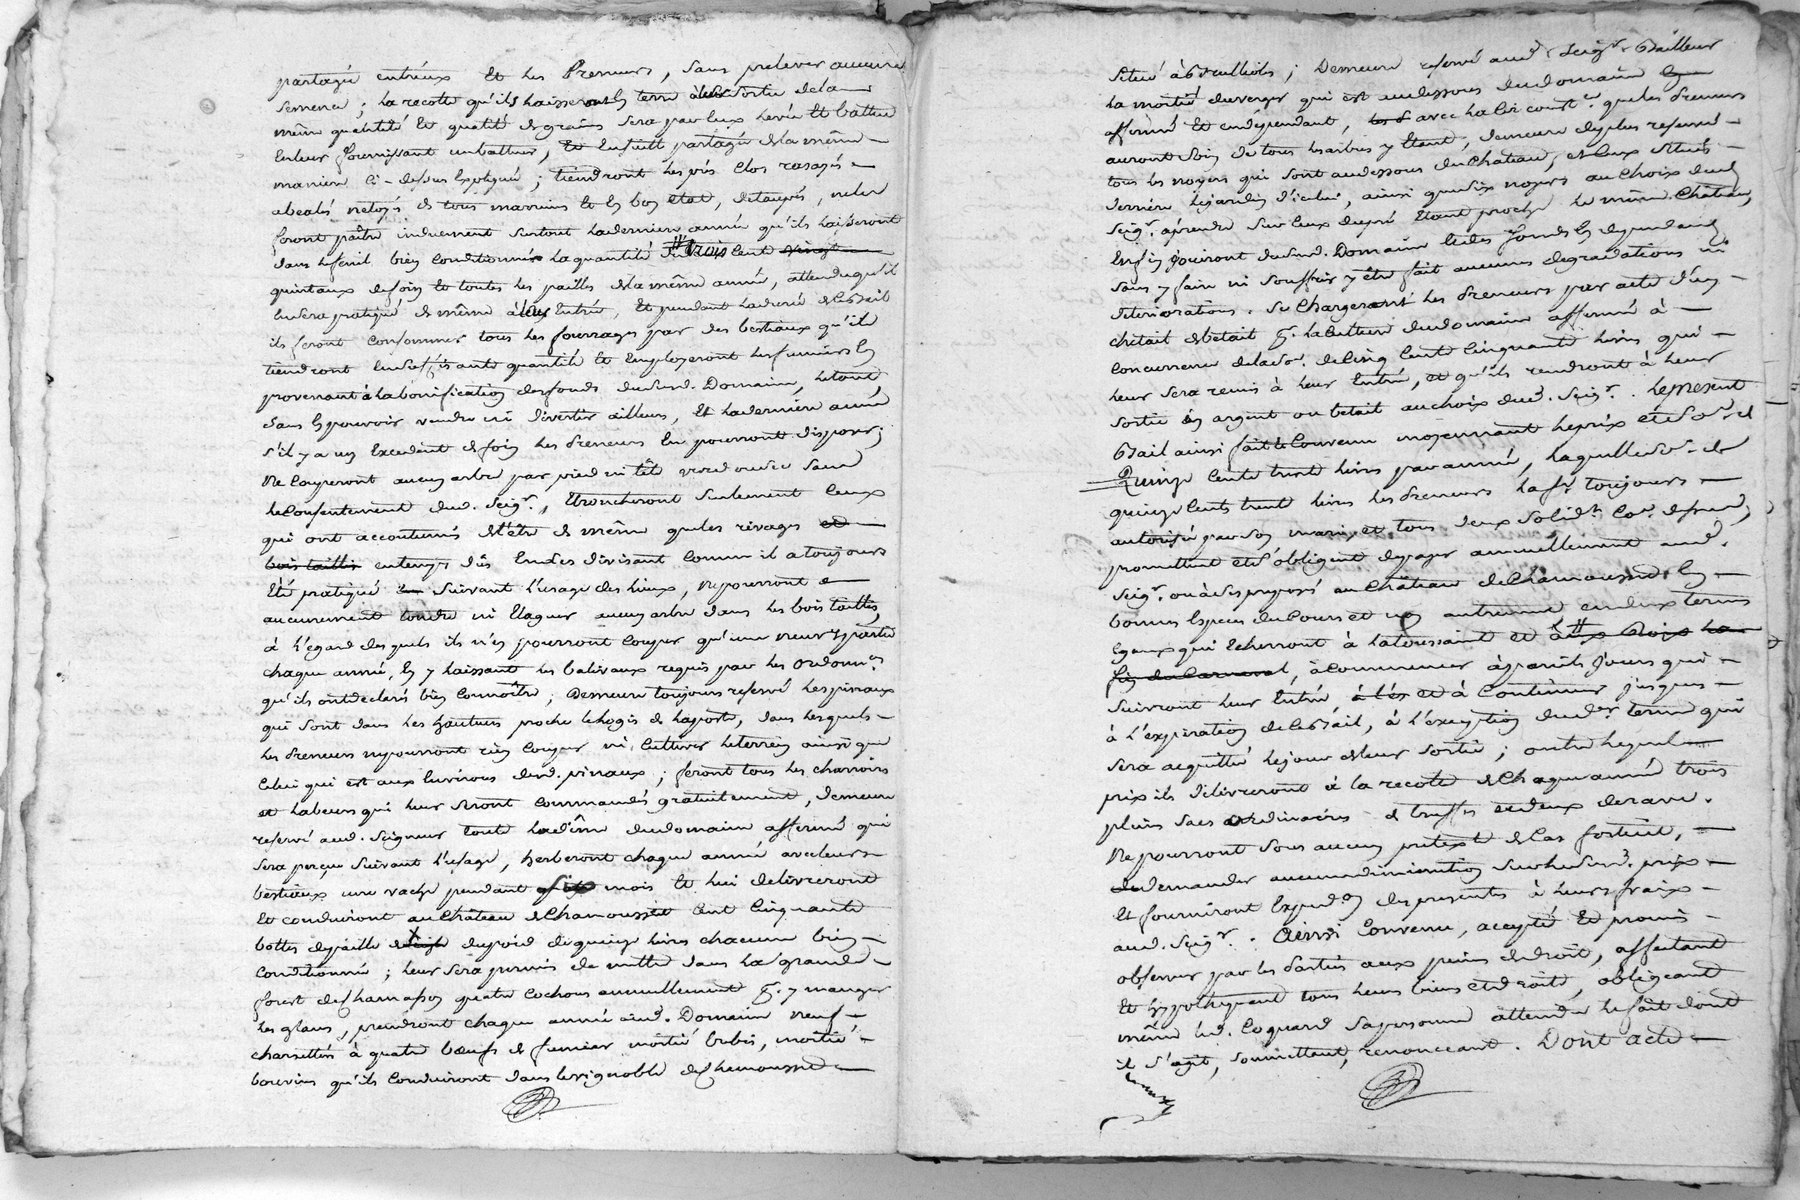 partagée entréux et les Preneurs, sans prelever aucune
semence; la recolte qu'ils laisseront en terre à leur sortie de la
même quantité et qualité de grains sera par eux levée et battue
en leur fournissant un batteur, et ensuitt partagée de la même
maniere ci-dessus expliquée; tiendront les prés clos rasagés
abealés netoyés de tous marrins et en bon etat, detaupés, ne les
feront paître indûement surtout la derniere année qu'ils laisseront
dans le fenil bien conditionnée la quantité de trois cent vingt
quintaux de foin et toutes les pailles de la même année, attendu qu'il
en sera pratiqué de même à leur entrée, et pendant la durée de ce bail
ils feront consommer tous les fourrages par des bestiaux qu'ils
tiendront en suffisante quantité et employeront les fumiers en
provenant à la bonification des fonds dudud. Domaine, le tout
sans en pouvoir vendre ni divertir ailleurs, et la derniere année
s'il y a un excedent de foin les Preneurs en pourront disposer;
ne couperont aucun arbre par pied ni tête verd ou sec sans
le consentement dud. Seigr., troncheront seulement ceux
qui ont accoutumés de l'être de même que les rivages et
bois taillis en temps dûs en les divisant comme il a toujours
été pratiqué suivant l'usage des lieux, ne pourront
aucunement tondre ni elaguer aucun arbre dans les bois taillis,
à l'égard desquels ils n'en pourront couper qu'une neuve partie
chaque année, en y laissant les balivaux requis par les ordonnes
qu'ils ont declaré bien connoître; Demeure toujours reservé les pinaux
qui sont dans les hauteurs proche le logis de la porte, dans lesquels
les Preneurs ne pourront rien couper ni cultiver le terrein ainsi que
celui qui est aux environs desd. pinaux; feront tous les charrois
et labeurs qui leur seront commandés gratuitement, demeure
reservé aud. Seigneur toute la dîme du domaine affermé qui
sera perçue suivant l'usage, herberont chaque année avec leurs
bestiaux une vache pendant six mois et lui delivreront
et conduiront au Château de Chamousset cent cinquante
bottes de paille du poid de quinze livres chacune bien
conditionnée; leur sera permis de mettre dans la grande
forest de quatre cochons annuellement p. y manger
les glans, prendront chaque année aud. Domaine neuf
charettées à quatre bœufs de fumier moitié brebis, moitié
bouvins qu'ils conduiront dans le vignoble de Chamousset
situé à ; Demeure reservé aud. Seigr. Bailleur
la moitié du verger qui est au dessous du domaine
affermé et en dependant, avec la loi que les Preneurs
auront soin de tous les arbres y etant, demeure de plus reservé
tous les noyers qui sont au dessous du Château, et ceux situés
derriere le jardin d'icelui, ainsi que six noyers au choix dud.
Seigr. à prendre sur ceux du pré etant proche le même Château,
enfin jouiront dudud. Domaine et des fonds en dependant
sans y faire ni souffrir y être fait aucunes degradations ni
deteriorations. Se chargeront les Preneurs par acte d'un
chétail de bétail p. la culture du domaine affermé à
concurrence de la so. de cinq cents cinquante livres qui
leur sera remis à leur entrée, et qu'ils rendront à leur
sortie en argent ou betail au choix dud. Seigr.. Le present
Bail ainsi fait et convenu moyennant le prix et so. de
Quinze cents trente livres par année, laquelle so. de
quinze cents trente livres les Preneurs la fe. toujours
autorisée par son mari, et tous deux solidt.
promettent et s'obligent de payer annuellement aud.
Seigr. ou à ses preposés au Château de Chamousset en
bonnes especes de cours et non autrement en deux termes
egaux qui echerront à la toussaint et
fin du Carnaval, à commencer à pareils jours qui
suivront leur entrée, et à continuer jusques
à l'expiration de ce bail, à l'exception du der. terme qui
sera acquitté le jour de leur sortie; outre lequel
prix ils delivreront à la recolte de chaque année trois
pleins sacs ordinaires de truffes et deux de rave.
Ne pourront sous aucun pretexte de cas fortuit,
demander aucune diminution sur le susd. prix
et fourniront expedon des presentes à leurs fraix
aud. Seigr.. Ainsi convenu, accepté et promis
observer par les Parties aux peines de droit, affectant
et hypothequant tous leurs biens et droits, obligeant
même led. Coquard sa personne attendu le fait dont
il s'agit, soumettant, renonceant. Dont acte